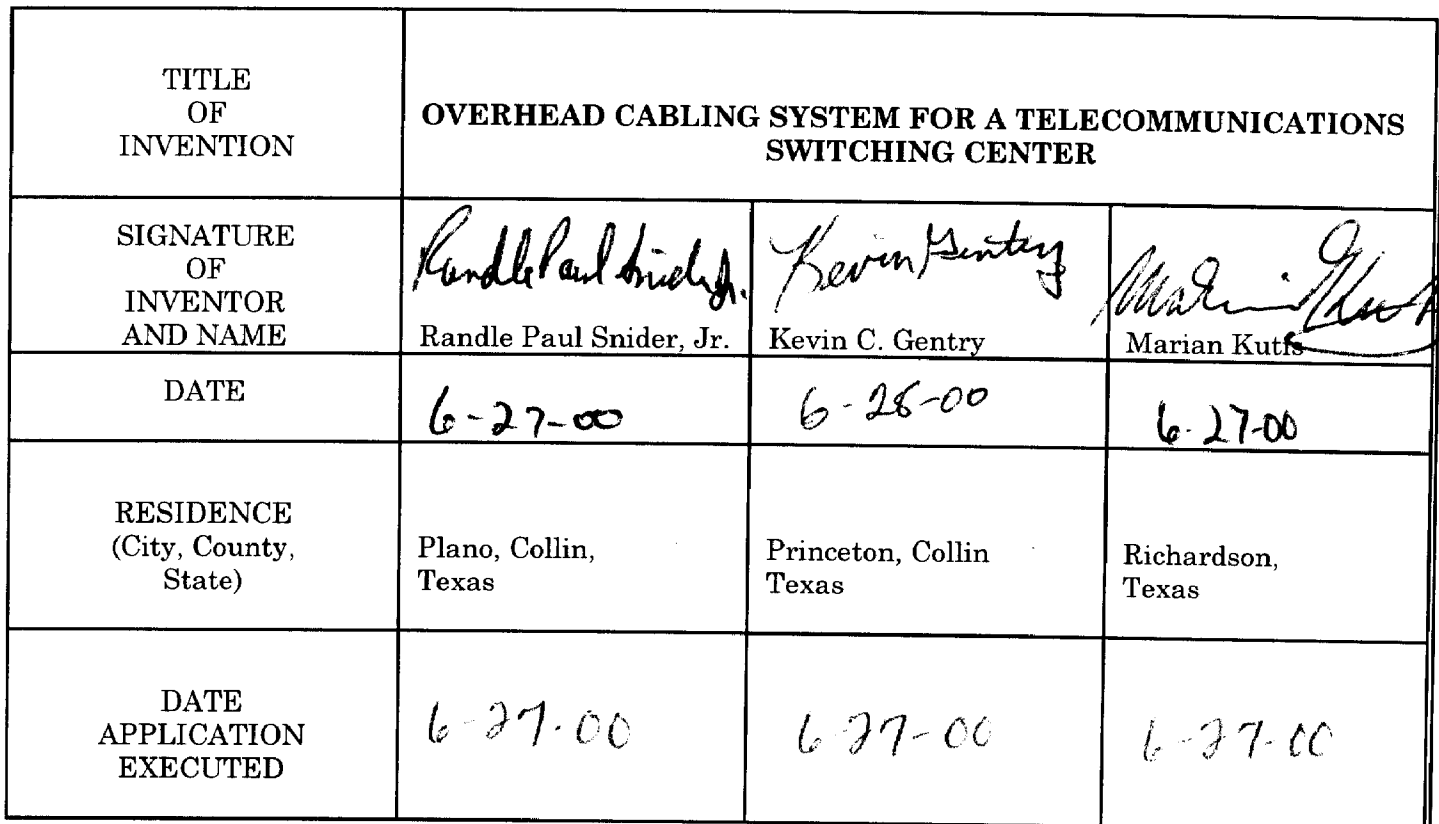 TITLE
OF
INVENTION
OVERHEAD CABLING SYSTEM FOR A TELECOMMUNICATIONS
SWITCHING CENTER
SIGNATURE
OF
INVENTOR
AND NAME
Randle Paul Snider Jr.
Randle Paul Snider, Jr.
Kevin Gentry
Kevin C. Gentry
Marian Kutis
DATE
6-27-00
6-28-00
6-27-00
RESIDENCE
(City, County,
State)
Plano, Collin,
Texas
Princeton, Collin
Texas
Richardson,
Texas
DATE
APPLICATION
EXECUTED
6-27-00
6-27-00
6-27-00